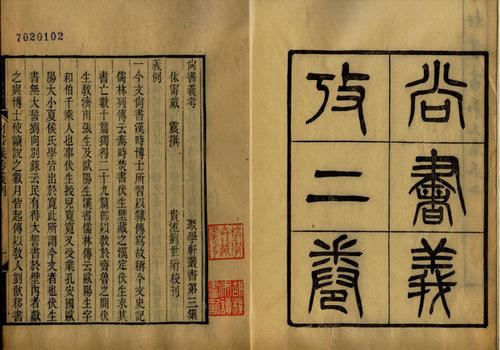 尚書義
攷二卷
7020102
尙書義考 聚學軒叢書第三集
休甯戴 震撰 貴池劉世珩校刊
義例
一今文尙書漢時博士所習以隸傳寫故稱今文史記
儒林列傳云秦時焚書伏生壁藏之漢定伏生求其
書亡數十篇獨得二十九篇卽以教於齊魯之閒伏
生教濟南張生及歐陽生漢書儒林傳云歐陽生字
和伯千乘人也事伏生授兒寬寬又受業孔安國歐
陽大小夏侯氏學皆出於寬此所謂今文者也伏生
書無大誓劉向別錄云民有得大誓書於壁內者獻
之與博士使讀說之數月皆起傳以教人劉歆移書